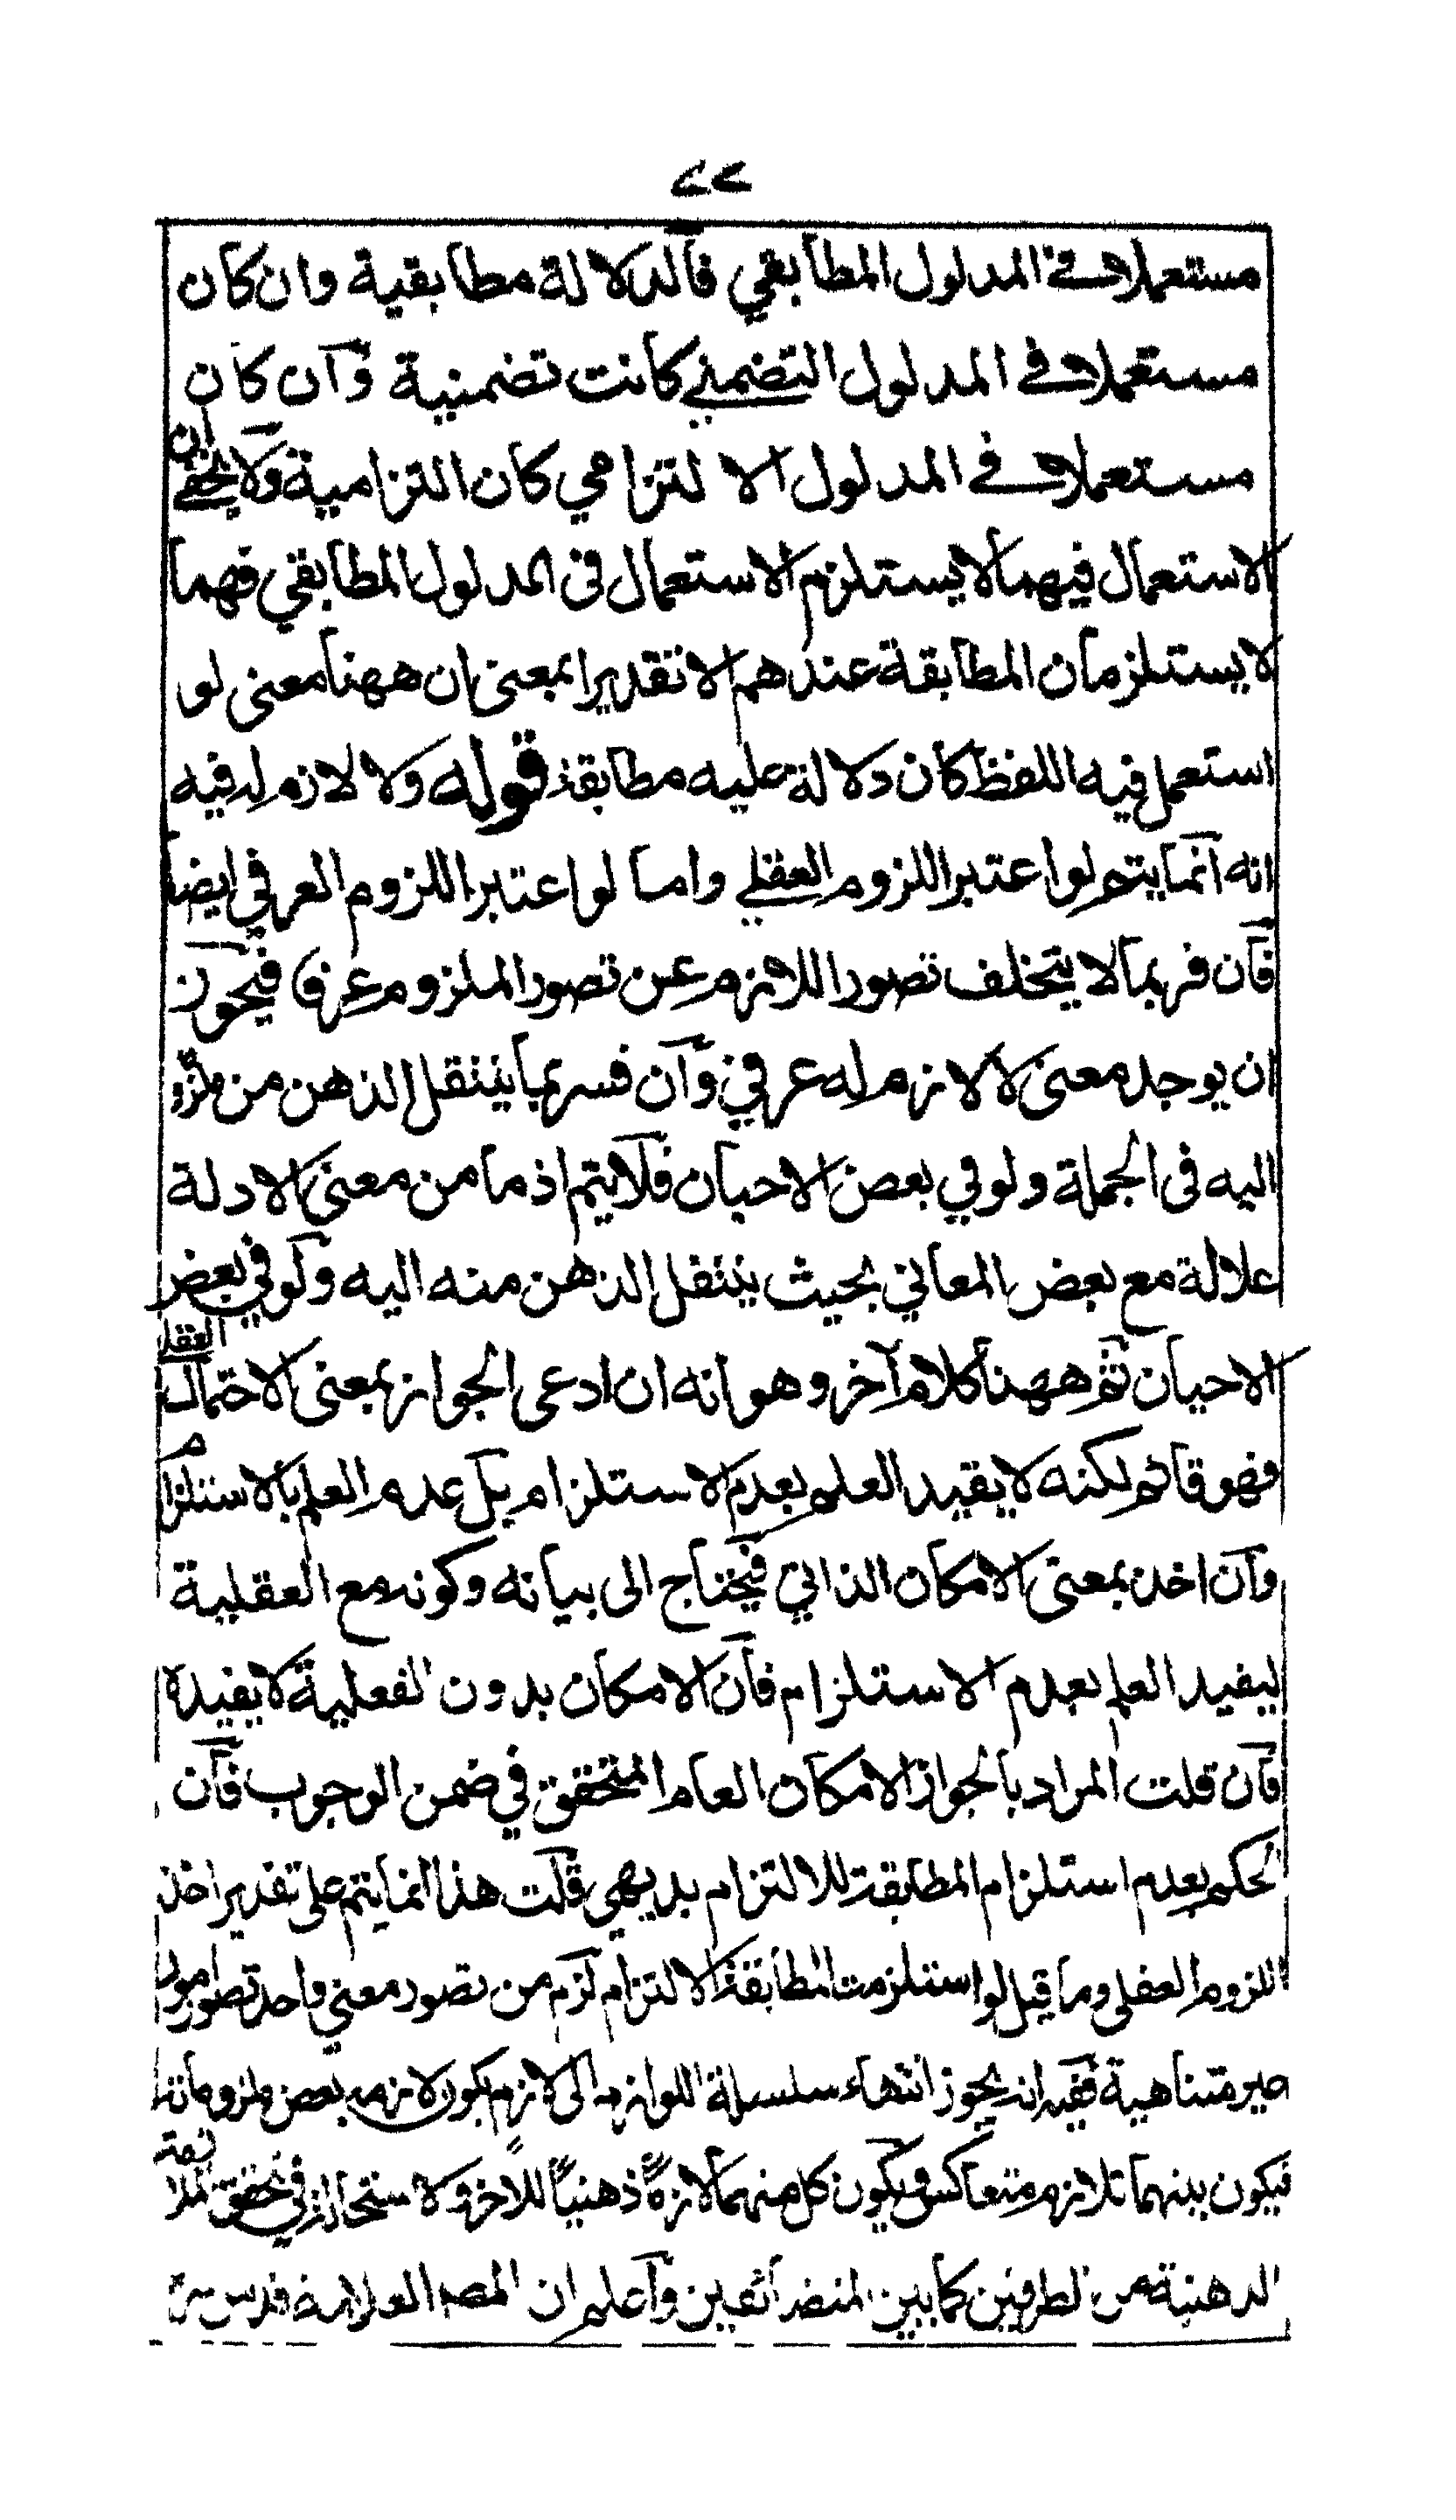 ٢٢
مستعملا في المدلول المطابقي فالدلالة مطابقية وان كان
مستعملا في المدلول التضمني كانت تضمنية وان كان
مستعملا في المدلول الالتزامي كان التزامية ولا يخفى ان
الاستعمال فيهما لا يستلزم الاستعمال فى المدلول المطابقي فهما
لا يستلزمان المطابقة عندهم الا تقديرا بمعنى ان ههنا معنى لو
استعمل فيه اللفظ كان دلالة عليه مطابقة قوله ولا لازم له فيه
انه انما يتم لو اعتبر اللزوم العقلي واما لو اعتبر اللزوم العرفي ايضا
فان فر بما لا يتخلف تصور اللازم عن تصور الملزوم عرفا فيجوز
ان يوجد معنى لا لازم له عرفي وان فسر بما ينتقل الذهن من ملزوم
اليه فى الجملة ولو في بعض الاحيان فلا يتم اذ ما من معنى الا دلة
علالة مع بعض المعاني بحيث ينتقل الذهن منه اليه ولو في بعض
الاحيان ثم ههنا كلام آخر وهو انه ان ادعى الجواز بمعنى الاحتمال العقل
فهو قائم لكنه لا يقيد العلم بعدم الاستلزام بل عدم العلم بالاستلزام
وان اخذ بمعنى الامكان الذاتي فيحتاج الى بيانه وكونه مع العقلية
ليفيد العلم بعدم الاستلزام فان الامكان بدون الفعلية لا يفيده
فان قلت المراد بالجواز الامكان العام المتحقق في ضمن الوجوب فان
الحكم بعدم استلزام المطابقة للالتزام بديهي قلت هذا انما يتم على تقدير اخذ
اللزوم العقلى وما قيل لو استلزمت المطابقة الالتزام لزم من تصور معني واحد تصور امور
غير متناهية ففيه انه يجوز انتهاء سلسلة اللوازم الى لازم يكون لازمه بعض ملزوماته
فيكون بينهما تلازم متعاكس ويكون كل منهما لازمًا ذهنيًا للاخر ولا استحالة في تحقق الملازمة
الذهنية من الطرفين كما بين المتضائفين واعلم ان المصـ العلامة قدس سره